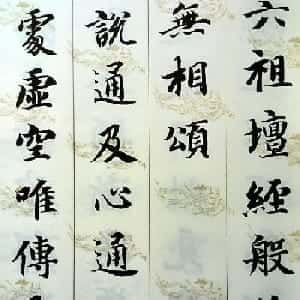 六祖壇經般
無相頌
說通及心通
處虛空唯傳